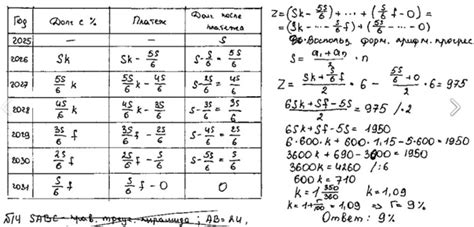 Год | Долг с % | Платеж | Долг после платежа
2025 | — | — | S
2026 | Sk | Sk - 5S/6 | S - S/6 = 5S/6
2027 | 5S/6 k | 5S/6 k - 4S/6 | S - 2S/6 = 4S/6
2028 | 4S/6 k | 4S/6 k - 3S/6 | S - 3S/6 = 3S/6
2029 | 3S/6 f | 3S/6 f - 2S/6 | S - 4S/6 = 2S/6
2030 | 2S/6 f | 2S/6 f - S/6 | S - 5S/6 = S/6
2031 | S/6 f | S/6 f - 0 | 0
Z = (Sk - 5S/6) + ... + (S/6 f - 0) =
= (Sk + ... + S/6 f) + (S/6 - ... - 0)
Воспольз. форм. арифм. прогрес
S = (a₁ + aₙ)/2 · n
Z = (Sk + S/6 f)/2 · 6 - (5S/6 + 0)/2 · 6 = 975
(6Sk + Sf - 5S)/2 = 975 / · 2
6Sk + Sf - 5S = 1950
6·600·k + 600·1,15 - 5·600 = 1950
3600k + 690 - 3000 = 1950
3600k = 4260 / :6
600k = 710
k = 1 350/360 k = 1,09
k = 1 + r/100 = 1,09 ⇒ r = 9%
Ответ: 9%
№14 SABC - прав. треуг. пирамида ; AB = 24,